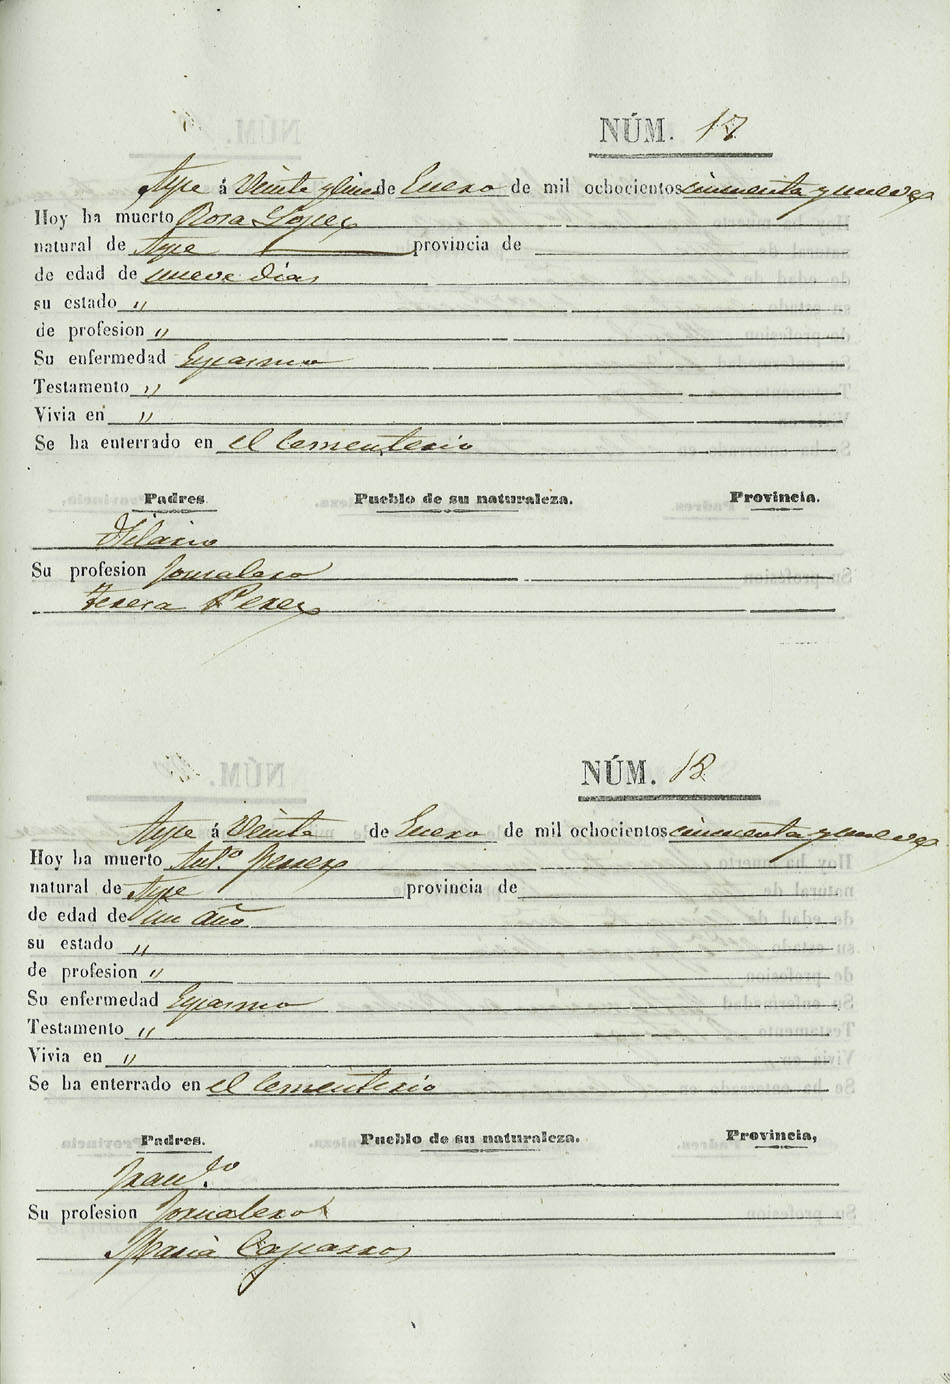 NÚM. 17
Aspe á Veinte y cinco de Enero de mil ochocientos cincuenta y nueve
Hoy ha muerto Rosa Lopez
natural de Aspe provincia de
de edad de nueve dias
su estado "
de profesion "
Su enfermedad Espasmo
Testamento "
Vivia en "
Se ha enterrado en el Cementerio
Padres Pueblo de su naturaleza. Provincia.
Hilario
Su profesion Jornalero
Teresa Perez
NÚM. 18
Aspe á Veinte de Enero de mil ochocientos cincuenta y nueve
Hoy ha muerto Ant.º
natural de Aspe provincia de
de edad de un año
su estado "
de profesion "
Su enfermedad Espasmo
Testamento "
Vivia en "
Se ha enterrado en el Cementerio
Padres. Pueblo de su naturaleza. Provincia,
Fran.co
Su profesion Jornalero
Maria Caparros